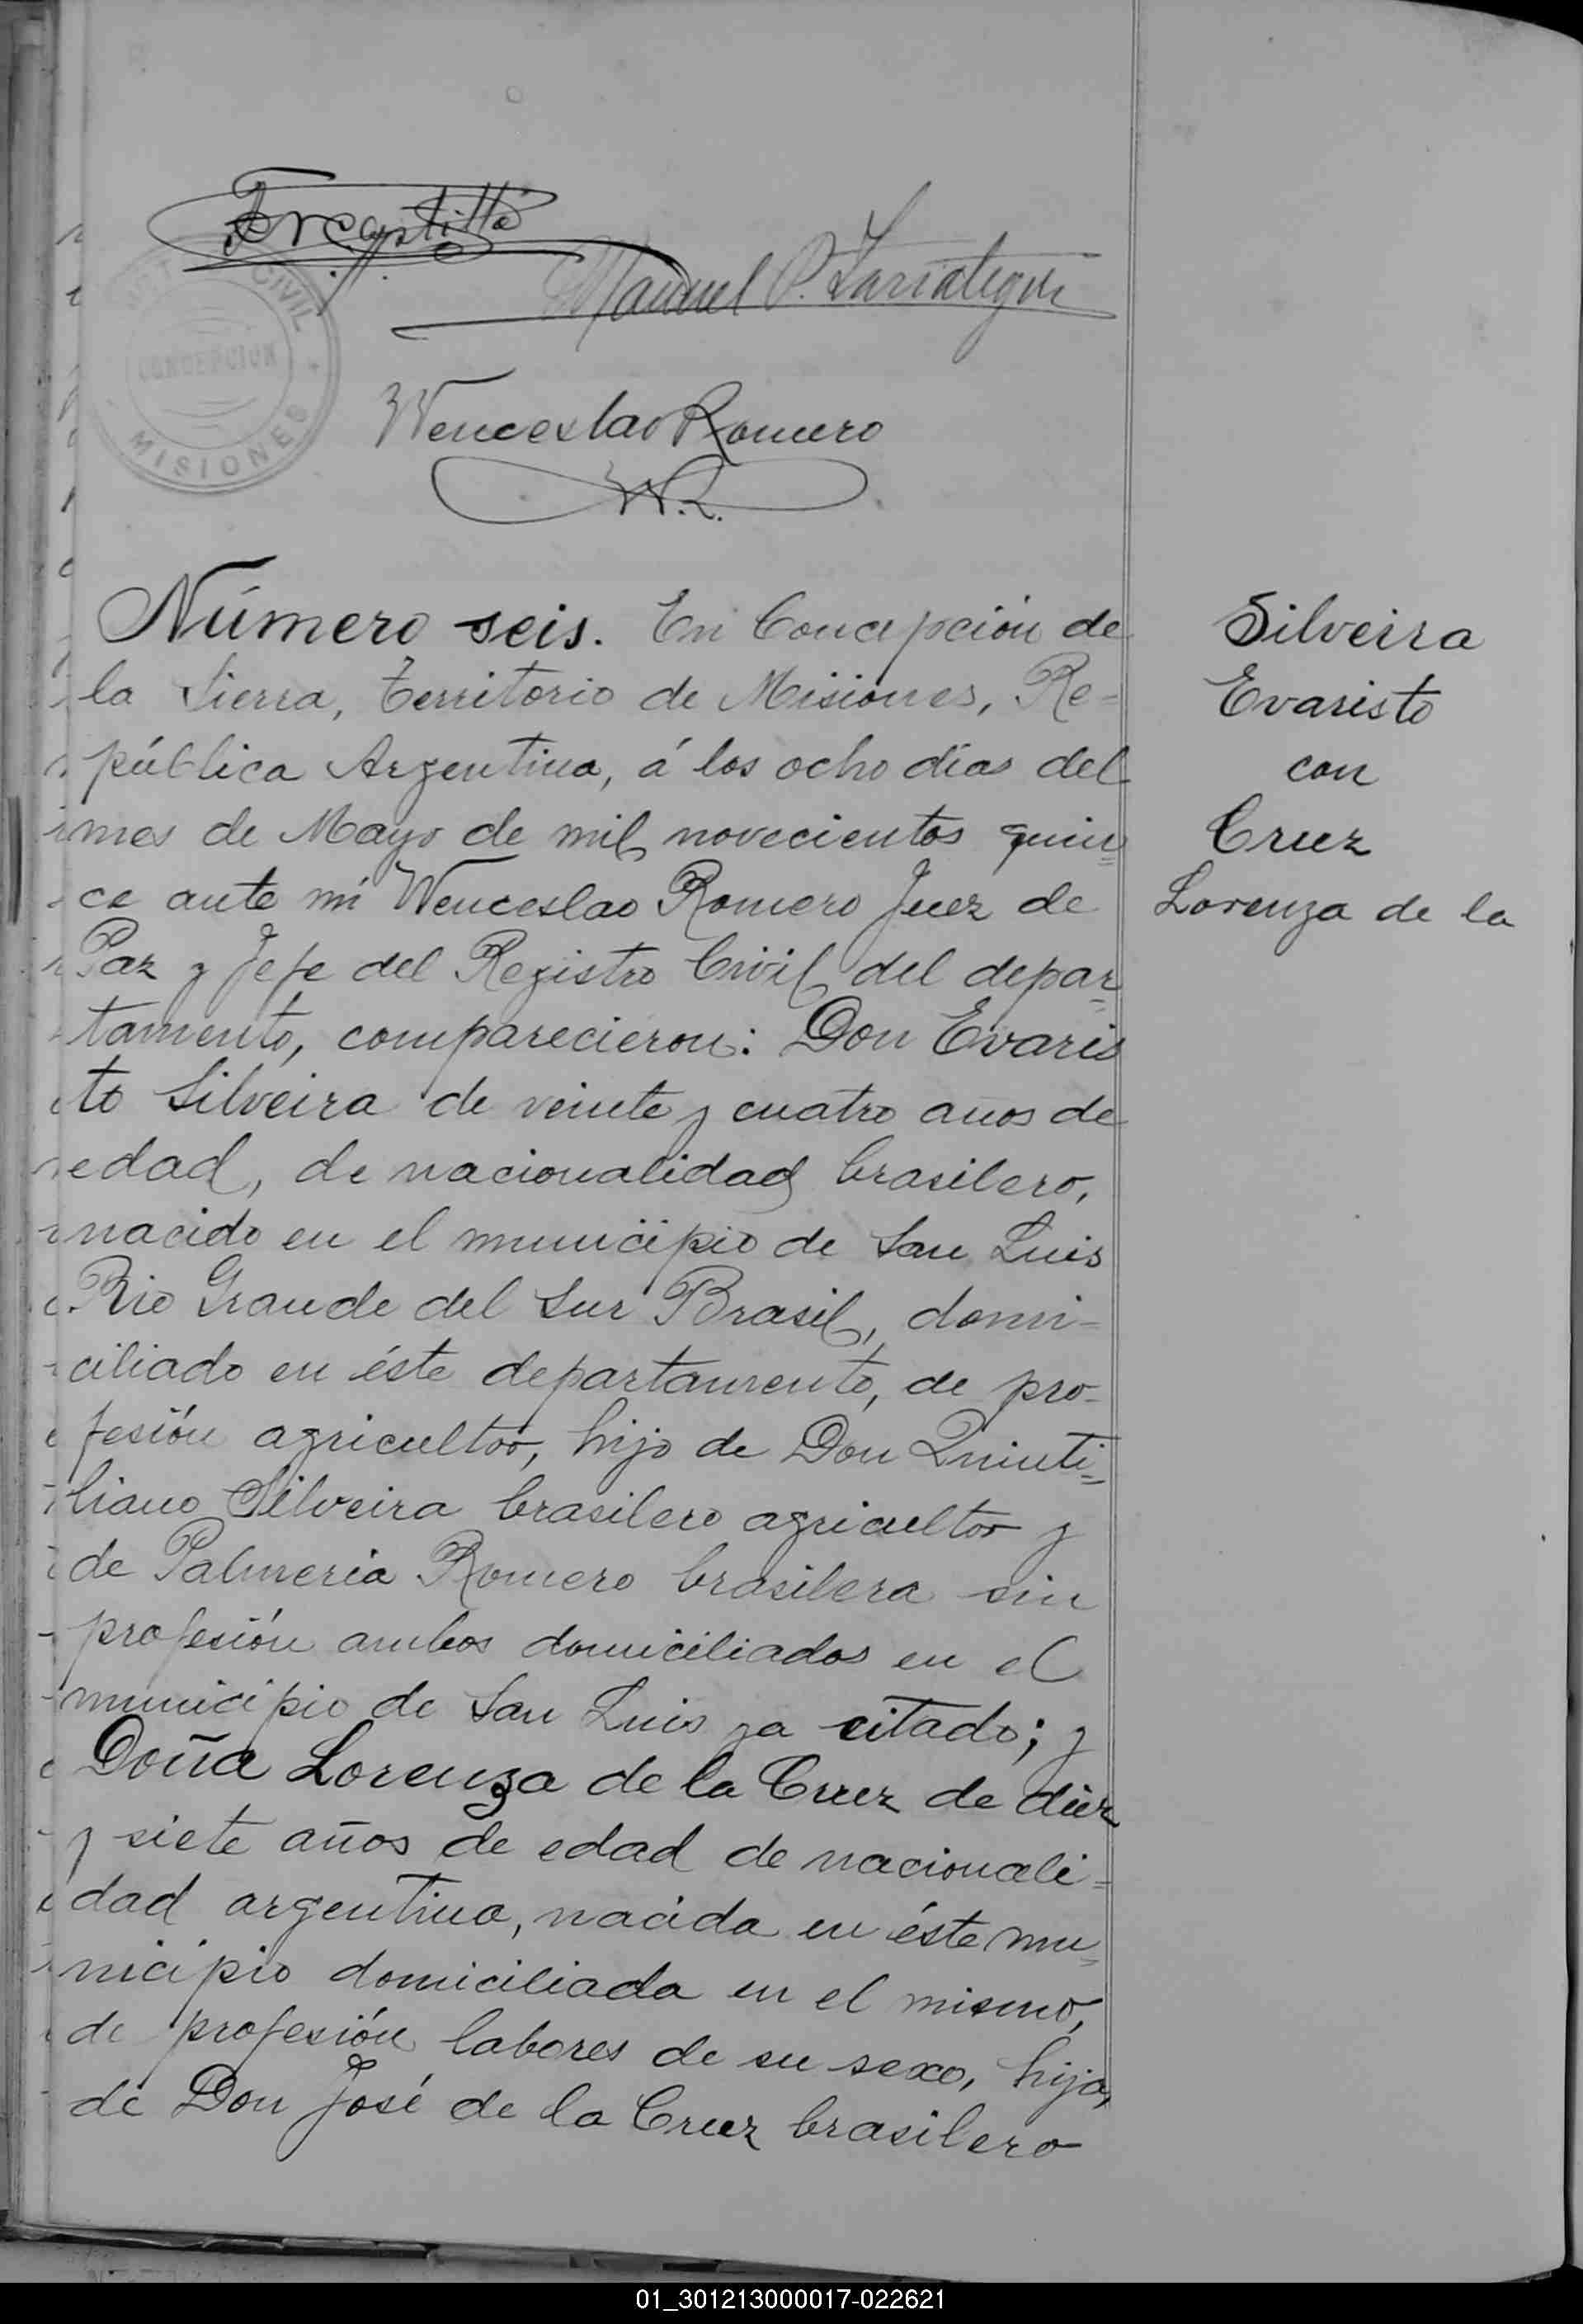 Manuel P. Larrategui
CIVIL
CONCEPCION
MISIONES
Wenceslao Romero
W.R.
Número seis. En Concepción de
la Sierra, territorio de Misiones, Re=
pública Argentina, á los ocho días del
mes de Mayo de mil novecientos quin=
ce ante mí Wenceslao Romero Juez de
Paz y Jefe del Registro Civil del depar=
tamento, comparecieron: Don Evaris
to Silveira de veinte y cuatro años de
edad, de nacionalidad brasilero,
nacido en el municipio de San Luis
Rio Grande del Sur Brasil, domi-
ciliado en éste departamento, de pro-
fesión agricultor, hijo de Don Quinti=
liano Silveira brasilero agricultor y
de Palmeria Romero brasilera sin
profesión ambos domiciliados en el
municipio de San Luis ya citado; y
Doña Lorenza de la Cruz de diez
y siete años de edad de nacionali=
dad argentina, nacida en éste mu=
nicipio domiciliada en el mismo,
de profesión labores de su sexo, hija,
de Don José de la Cruz brasilero
Silveira
Evaristo
con
Cruz
Lorenza de la
01_301213000017-022621